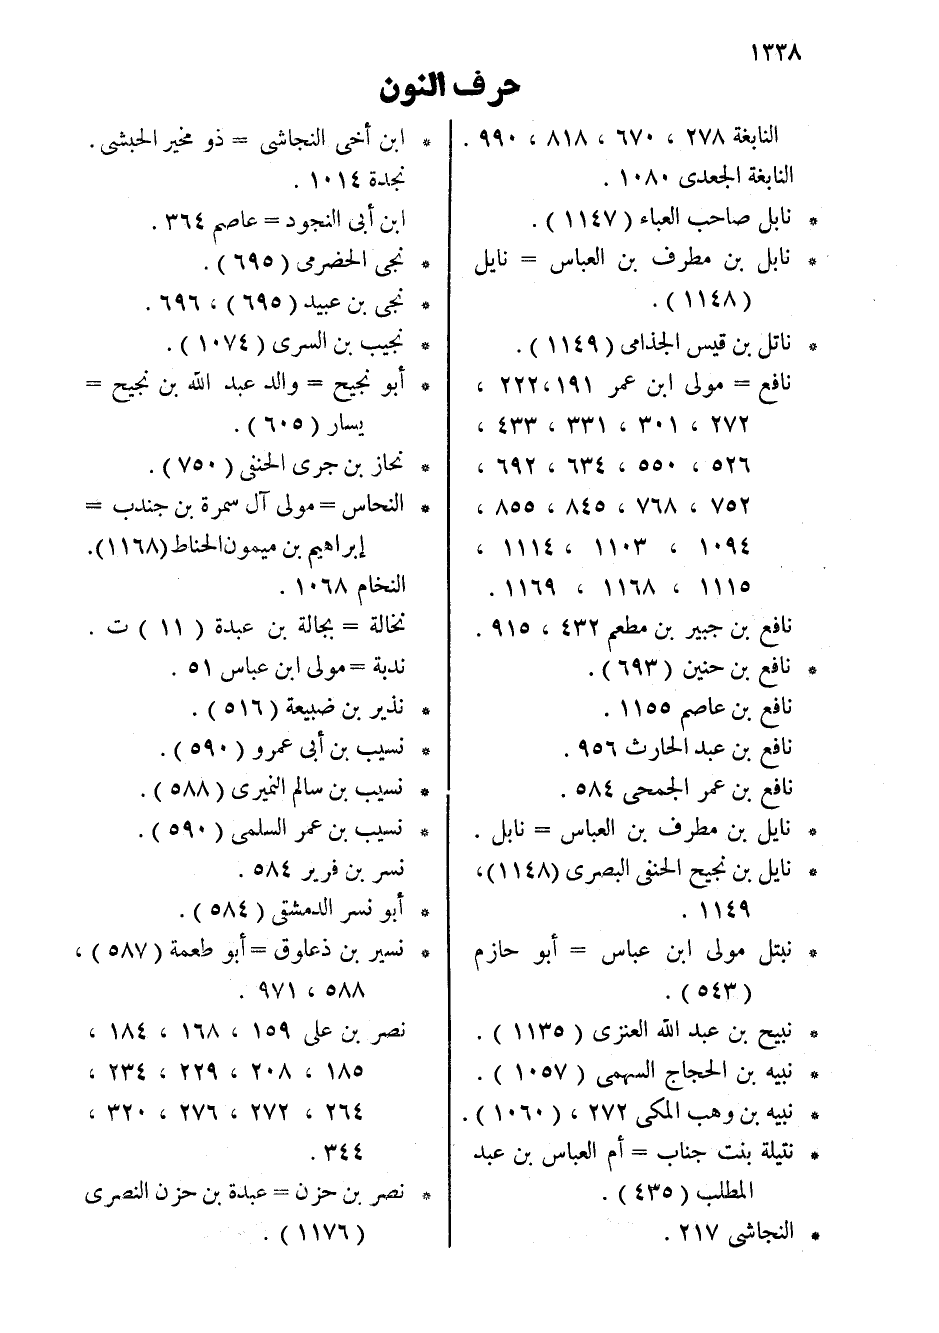 ١٣٣٨
حرف النون
النابغة ٢٧٨ ، ٦٧٠ ، ٨١٨ ، ٩٩٠ .
النابغة الجعدى ١٠٨٠ .
* نابل صاحب العباء ( ١١٤٧ ) .
* نابل بن مطرف بن العباس = نايل
( ١١٤٨ ) .
* ناتل بن قيس الجذامى ( ١١٤٩ ) .
نافع = مولى ابن عمر ١٩١ ،٢٢٢ ،
٢٧٢ ، ٣٠١ ، ٣٣١ ، ٤٣٣ ،
٥٢٦ ، ٥٥٠ ، ٦٣٤ ، ٦٩٢ ،
٧٥٢ ، ٧٦٨ ، ٨٤٥ ، ٨٥٥ ،
١٠٩٤ ، ١١٠٣ ، ١١١٤ ،
١١١٥ ، ١١٦٨ ، ١١٦٩ .
نافع بن جبير بن مطعم ٤٣٢ ، ٩١٥ .
* نافع بن حنين ( ٦٩٣ ) .
نافع بن عاصم ١١٥٥ .
نافع بن عبد الحارث ٩٥٦ .
نافع بن عمر الجمحى ٥٨٤ .
* نايل بن مطرف بن العباس = نابل .
* نايل بن نجيح الحنفى البصرى (١١٤٨)،
١١٤٩ .
* نبتل مولى ابن عباس = أبو حازم
( ٥٤٣ ) .
* نبيح بن عبد الله العنزى ( ١١٣٥ ) .
* نبيه بن الحجاج السهمى ( ١٠٥٧ ) .
* نبيه بن وهب المكى ٢٧٢ ، ( ١٠٦٠ ) .
* نتيلة بنت جناب = أم العباس بن عبد
المطلب ( ٤٣٥ ) .
* النجاشى ٢١٧ .
* ابن أخى النجاشى = ذو مخبر الحبشى .
نجدة ١٠١٤ .
ابن أبى النجود = عاصم ٣٦٤ .
* نجى الحضرمى ( ٦٩٥ ) .
* نجى بن عبيد ( ٦٩٥ ) ، ٦٩٦ .
* نجيب بن السرى ( ١٠٧٤ ) .
* أبو نجيح = والد عبد الله بن نجيح =
يسار ( ٦٠٥ ) .
* نحاز بن جرى الحنفى ( ٧٥٠ ) .
* النحاس = مولى آل سمرة بن جندب =
إبراهيم بن ميمون الحناط (١١٦٨) .
النخام ١٠٦٨ .
نخالة = بجالة بن عبدة ( ١١ ) ت .
ندبة = مولى ابن عباس ٥١ .
* نذير بن ضبيعة ( ٥١٦ ) .
* نسيب بن أبى عمرو ( ٥٩٠ ) .
* نسيب بن سالم النميرى ( ٥٨٨ ) .
* نسيب بن عمر السلمى ( ٥٩٠ ) .
نسر بن فرير ٥٨٤ .
* أبو نسر الدمشقى ( ٥٨٤ ) .
* نسير بن ذعلوق = أبو طعمة ( ٥٨٧ ) ،
٥٨٨ ، ٩٧١ .
نصر بن على ١٥٩ ، ١٦٨ ، ١٨٤ ،
١٨٥ ، ٢٠٨ ، ٢٢٩ ، ٢٣٤ ،
٢٦٤ ، ٢٧٢ ، ٢٧٦ ، ٣٢٠ ،
٣٤٤ .
* نصر بن حزن = عبدة بن حزن النصرى
( ١١٧٦ ) .